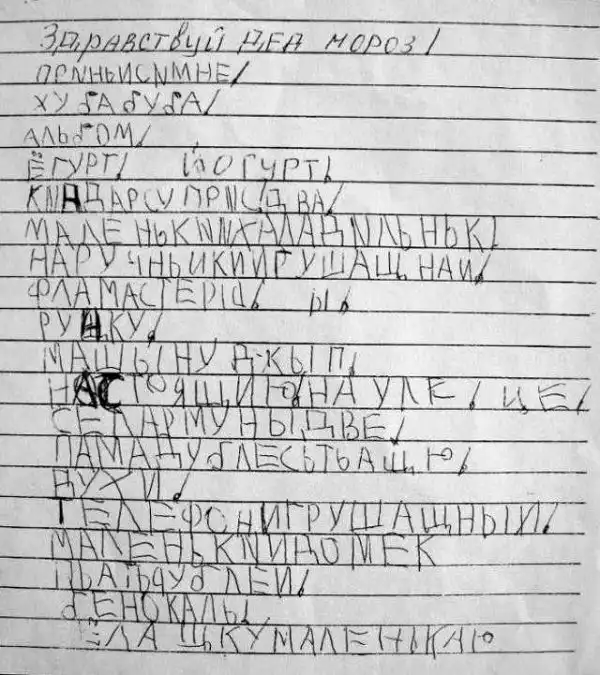 ЗДРАВСТВУЙ ДЕД МОРОЗ!
ПРИНЬИСИМНЕ!
ХУБАБУБА!
АЛЬБОМ!
ЁГУРТ! ЙОГУРТ!
КИНДАРСУПРИСДВА!
МАЛЕНЬКИИХАЛАДИЛЬНЬК!
НАРУЧНЬИКИИГРУШАЩНАИ!
ФЛАМАСТЕРЦ! Ы!
РУЧКУ!
МАШЫНУ ДЖЫП!
НАСТОЯЩИЮ!НА УЛЕ! ЦЕ!
СЕЛАРМУНЫДВЕ!
ПАМАДУБЛЕСЬТЬАЩЮ!
ДУХИ!
ТЕЛЕФОНИГРУШАЩНЫЙ!
МАЛЕНЬКИИДОМЕК
БЕНОКАЛЫ!
ЁЛАЩЬКУМАЛЕНЬКАЮ